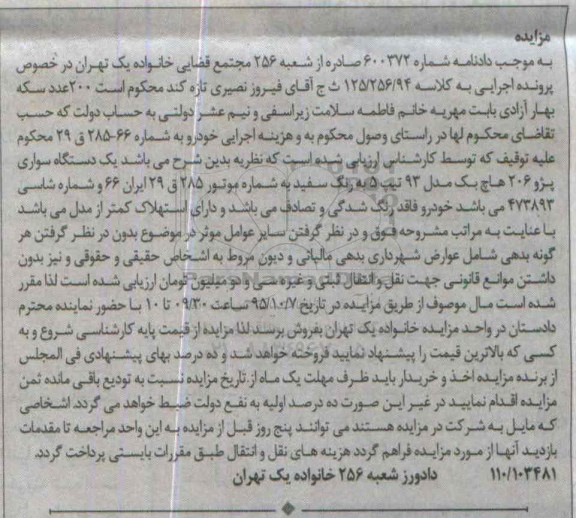 مزایده
به موجب دادنامه شماره ۶۰۰۳۷۲ صادره از شعبه ۲۵۶ مجتمع قضایی خانواده یک تهران در خصوص
پرونده اجرایی به کلاسه ۱۲۵/۲۵۶/۹۴ ث ج آقای فیروز نصیری تازه کند محکوم است ۲۰۰عدد سکه
بهار آزادی بابت مهریه خانم فاطمه سلامت زیراسفی و نیم عشر دولتی به حساب دولت که حسب
تقاضای محکوم لها در راستای وصول محکوم به و هزینه اجرایی خودرو به شماره ۶۶-۲۸۵ ق ۲۹ محکوم
علیه توقیف که توسط کارشناس ارزیابی شده است که نظریه بدین شرح می باشد یک دستگاه سواری
پژو ۲۰۶ هاچ بک مدل ۹۳ تیپ ۵ به رنگ سفید به شماره موتور ۲۸۵ ق ۲۹ ایران ۶۶ و شماره شاسی
۴۷۳۸۹۳ می باشد خودرو فاقد رنگ شدگی و تصادف می باشد و دارای استهلاک کمتر از مدل می باشد
با عنایت به مراتب مشروحه فوق و در نظر گرفتن سایر عوامل موثر در موضوع بدون در نظر گرفتن هر
گونه بدهی شامل عوارض شهرداری بدهی مالیاتی و دیون مربوط به اشخاص حقیقی و حقوقی و نیز بدون
داشتن موانع قانونی جهت نقل و انتقال ثبتی و غیره سی و دو میلیون تومان ارزیابی شده است لذا مقرر
شده است مال موصوف از طریق مزایده در تاریخ ۹۵/۱۰/۷ ساعت ۰۹/۳۰ تا ۱۰ با حضور نماینده محترم
دادستان در واحد مزایده خانواده یک تهران بفروش برسد لذا مزایده از قیمت پایه کارشناسی شروع و به
کسی که بالاترین قیمت را پیشنهاد نمایید فروخته خواهد شد و ده درصد بهای پیشنهادی فی المجلس
از برنده مزایده اخذ و خریدار باید ظرف مهلت یک ماه از تاریخ مزایده نسبت به تودیع باقی مانده ثمن
مزایده اقدام نمایید در غیر این صورت ده درصد اولیه به نفع دولت ضبط خواهد می گردد. اشخاصی
که مایل به شرکت در مزایده هستند می توانند پنج روز قبل از مزایده به این واحد مراجعه تا مقدمات
بازدید آنها از مورد مزایده فراهم گردد هزینه های نقل و انتقال طبق مقررات بایستی پرداخت گردد.
۱۱۰/۱۰۳۴۸۱ دادورز شعبه ۲۵۶ خانواده یک تهران